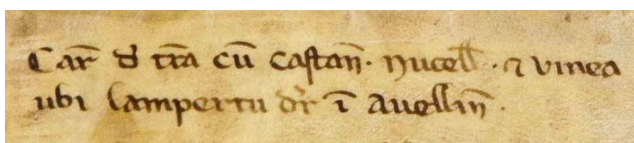 Car̄ d̄ tr̄a cū caſtan̄. nucell̄. ⁊ vinea
ubi lampertu dr̄ ī auellin̄.